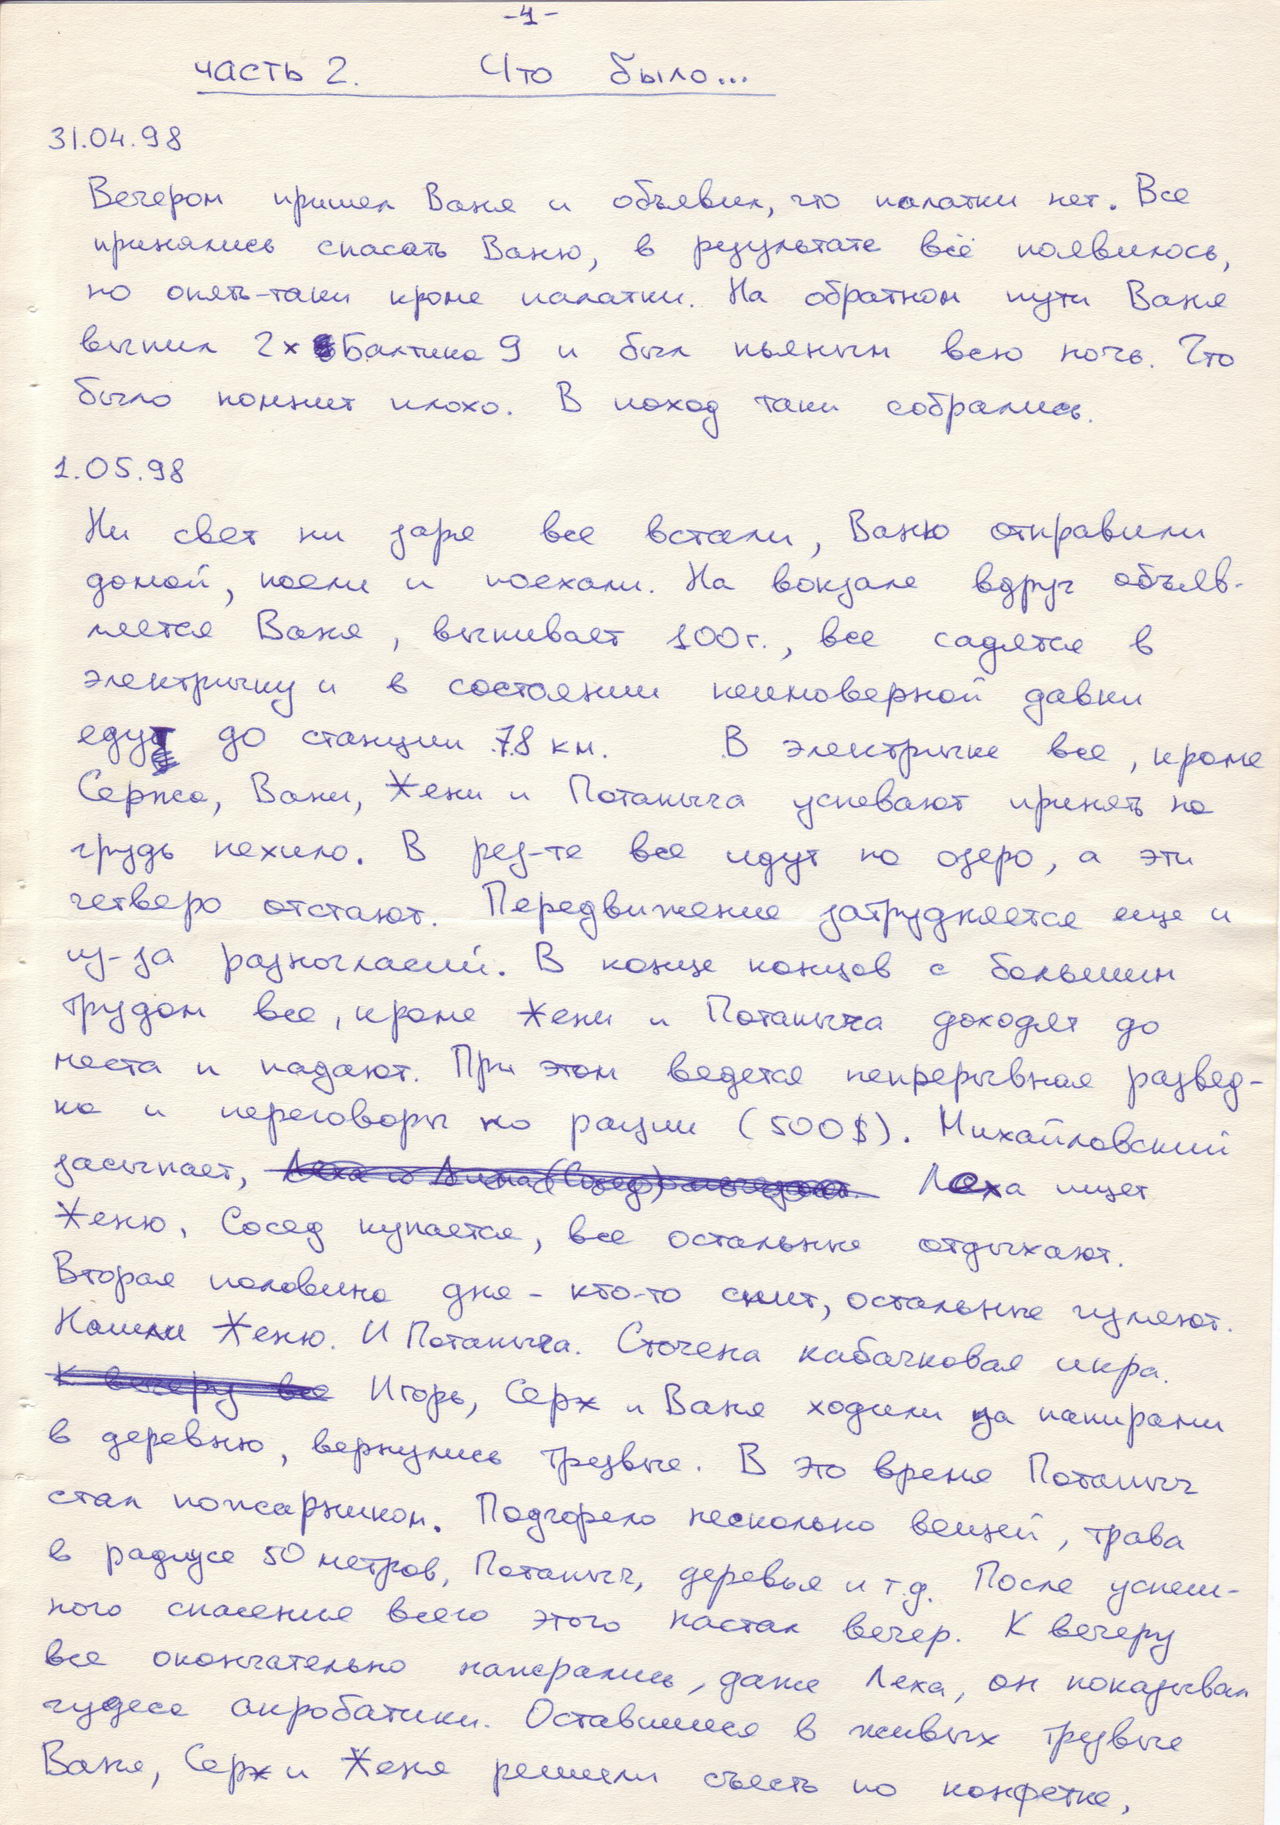 -4-
часть 2. Что было...
31.04.98
Вечером пришел Ваня и объявил, что палатки нет. Все
принялись спасать Ваню, в результате всё появилось,
но опять-таки кроме палатки. На обратном пути Ваня
выпил 2x Балтика 9 и был пьяным всю ночь. Что
было помнит плохо. В поход таки собрались.
1.05.98
Ни свет ни заря все встали, Ваню отправили
домой, поели и поехали. На вокзале вдруг объяв-
ляется Ваня, выпивает 100г., все садятся в
электричку и в состоянии неимоверной давки
едут до станции 78 км. В электричке все, кроме
Сержа, Вани, Жени и Потапыча успевают принять на
грудь нехило. В рез-те все идут на озеро, а эти
четверо отстают. Передвижение затрудняется еще и
из-за разногласий. В конце концов с большим
трудом все, кроме Жени и Потапыча доходят до
места и падают. При этом ведется непрерывная развед-
ка и переговоры по рации (500$). Михайловский
засыпает, Леха ищет
Женю, Сосед купается, все остальные отдыхают.
Вторая половина дня - кто-то спит, остальные гуляют.
Нашли Женю. И Потапыча. Сточена кабачковая икра.
К вечеру все Игорь, Серж и Ваня ходили за папирами
в деревню, вернулись трезвые. В это время Потапыч
стал пожарником. Подгорело несколько вещей, трава
в радиусе 50 метров, Потапыч, деревья и т.д. После успеш-
ного спасения всего этого настал вечер. К вечеру
все окончательно нажрались, даже Леха, он показывал
чудеса акробатики. Оставшиеся в живых трезвые
Ваня, Серж и Женя решили съесть по конфетке,